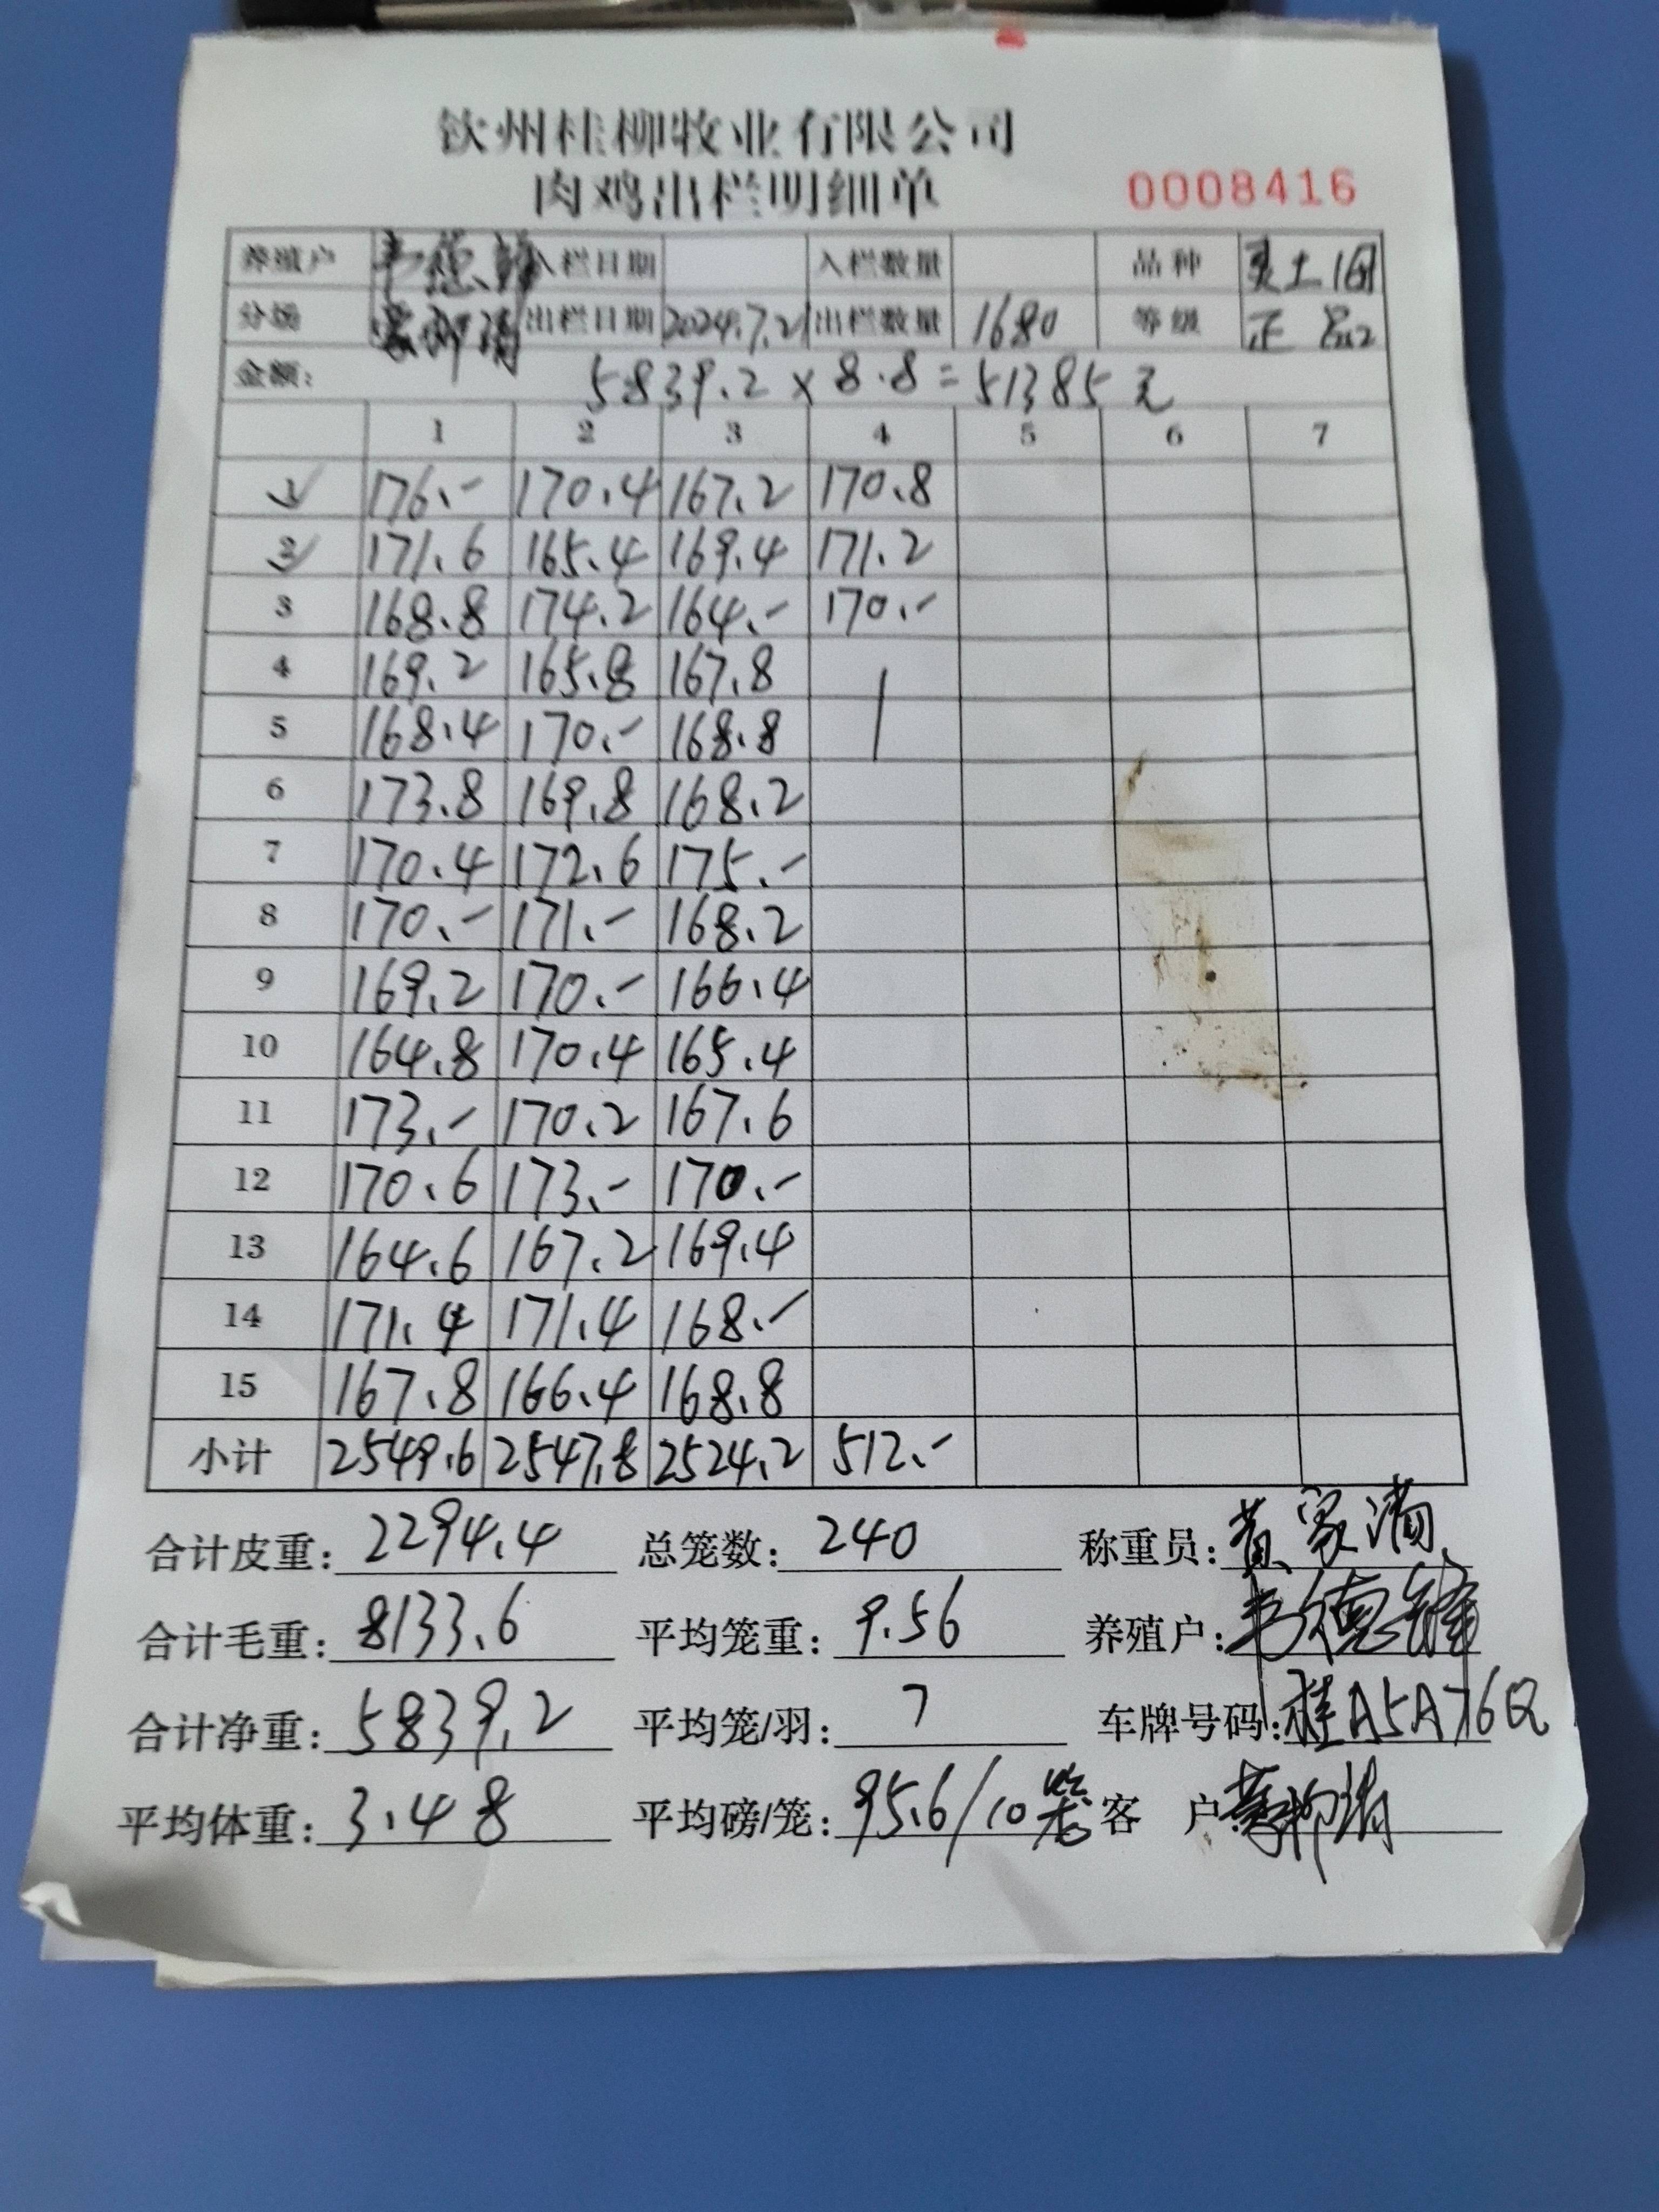 钦州桂柳牧业有限公司
肉鸡出栏明细单 0008416
养殖户 韦德锋 入栏日期 入栏数量 品种 土
分场 出栏日期 2024.7.21 出栏数量 1680 等级 正品2
金额: 5839.2 × 8.8 = 51385元
1 2 3 4 5 6 7
1 176.- 170.4 167.2 170.8
2 171.6 165.4 169.4 171.2
3 168.8 174.2 164.- 170.-
4 169.2 165.8 167.8
5 168.4 170.- 168.8
6 173.8 169.8 168.2
7 170.4 172.6 175.-
8 170.- 171.- 168.2
9 169.2 170.- 166.4
10 164.8 170.4 165.4
11 173.- 170.2 167.6
12 170.6 173.- 170.-
13 164.6 167.2 169.4
14 171.4 171.4 168.-
15 167.8 166.4 168.8
小计 2549.6 2547.8 2524.2 512.-
合计皮重: 2294.4 总笼数: 240 称重员: 黄家满
合计毛重: 8133.6 平均笼重: 9.56 养殖户: 韦德锋
合计净重: 5839.2 平均笼/羽: 7 车牌号码: 桂A5A76Q
平均体重: 3.48 平均磅/笼: 95.6/10笼 客 户